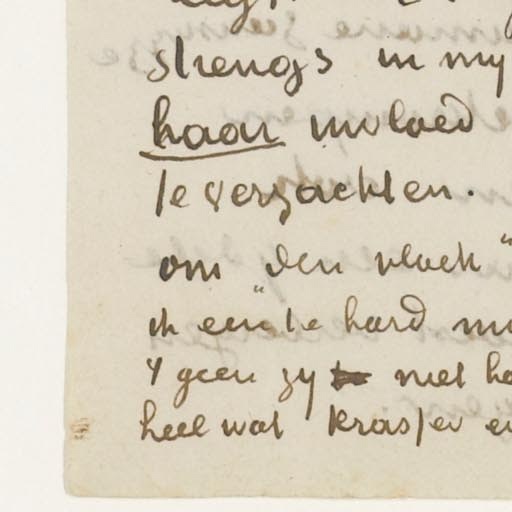 strengs in my
haar invloed
te verzachten.
om den vloek "
ik een "te hard
't geen zy niet
heel wat krasser